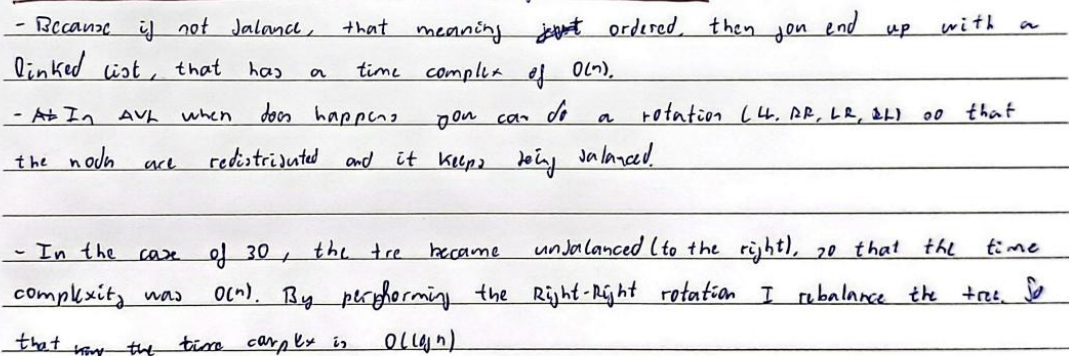 - Because if not balance, that meaning just ordered, then you end up with a
linked list, that has a time complex of O(n).
- At In AVL when does happens you can do a rotation (LL, RR, LR, RL) so that
the nodn are redistributed and it keeps being balanced.
- In the case of 30, the tre became unbalanced (to the right), so that the time
complexity was O(n). By perphorming the Right-Right rotation I rebalance the tree. So
that now the time complex is O(log n)